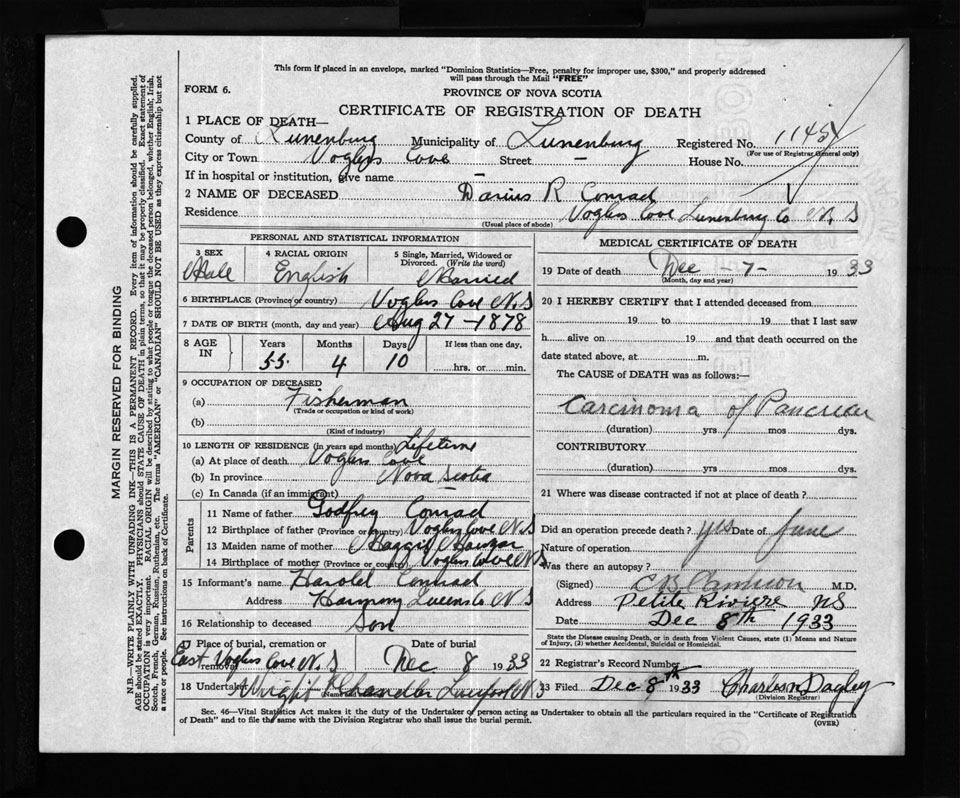 This form if placed in an envelope, marked "Dominion Statistics—Free, penalty for improper use, $300," and properly addressed
will pass through the Mail "FREE"
FORM 6.
PROVINCE OF NOVA SCOTIA
CERTIFICATE OF REGISTRATION OF DEATH
1 PLACE OF DEATH—
County of Lunenburg Municipality of Lunenburg Registered No. 1145
(For use of Registrar General only)
City or Town Voglers Cove Street – House No.
If in hospital or institution, give name –
2 NAME OF DECEASED Darius R Conrad
Residence Voglers Cove Lunenburg Co N. S
(Usual place of abode)
PERSONAL AND STATISTICAL INFORMATION
3 SEX Male
4 RACIAL ORIGIN English
5 Single, Married, Widowed or Divorced. (Write the word) Married
6 BIRTHPLACE (Province or country) Voglers Cove N.S
7 DATE OF BIRTH (month, day and year) Aug 27-1878
8 AGE IN Years 55 Months 4 Days 10 If less than one day, hrs. or min.
9 OCCUPATION OF DECEASED
(a) Fisherman
(Trade or occupation or kind of work)
(b)
(Kind of industry)
10 LENGTH OF RESIDENCE (in years and months) Lifetime
(a) At place of death Voglers Cove
(b) In province Nova Scotia
(c) In Canada (if an immigrant)
Parents
11 Name of father Godfrey Conrad
12 Birthplace of father (Province or country) Voglers Cove N.S
13 Maiden name of mother Maggie
14 Birthplace of mother (Province or country) Voglers Cove N.S
15 Informant's name Harold Conrad
Address Harmony Queens Co N. S
16 Relationship to deceased Son
17 Place of burial, cremation or removal East Voglers Cove N. S Date of burial Dec 8 1933
18 Undertaker Wright Chandler Liverpool N S
MEDICAL CERTIFICATE OF DEATH
19 Date of death Dec -7- 1933
(Month, day and year)
20 I HEREBY CERTIFY that I attended deceased from
19 to 19 that I last saw
h alive on 19 and that death occurred on the
date stated above, at m.
The CAUSE of DEATH was as follows:—
Carcinoma of Pancreas
(duration) yrs mos dys.
CONTRIBUTORY.
(duration) yrs mos dys.
21 Where was disease contracted if not at place of death ?
Did an operation precede death ? yes Date of June
Nature of operation
Was there an autopsy ?
(Signed) C B Cameron M.D.
Address Petite Riviere NS
Date Dec 8th 1933
State the Disease causing Death, or in death from Violent Causes, state (1) Means and Nature
of Injury, (2) whether Accidental, Suicidal or Homicidal.
22 Registrar's Record Number
23 Filed Dec 8th 1933 Dagley
(Division Registrar)
Sec. 46—Vital Statistics Act makes it the duty of the Undertaker or person acting as Undertaker to obtain all the particulars required in the "Certificate of Registration
of Death" and to file the same with the Division Registrar who shall issue the burial permit.
(OVER)
MARGIN RESERVED FOR BINDING
N.B.—WRITE PLAINLY WITH UNFADING INK—THIS IS A PERMANENT RECORD. Every item of information should be carefully supplied.
AGE should be stated EXACTLY. PHYSICIANS should STATE CAUSE OF DEATH in plain terms, so that it may be properly classified. Exact statement of
OCCUPATION is very important. RACIAL ORIGIN will be described by stating to what people or tongue the deceased person belonged, whether English, Irish,
Scotch, French, German, Russian, Ruthenian, etc. The terms "AMERICAN" or "CANADIAN" SHOULD NOT BE USED as they express citizenship but not
a race or people. See instructions on back of Certificate.